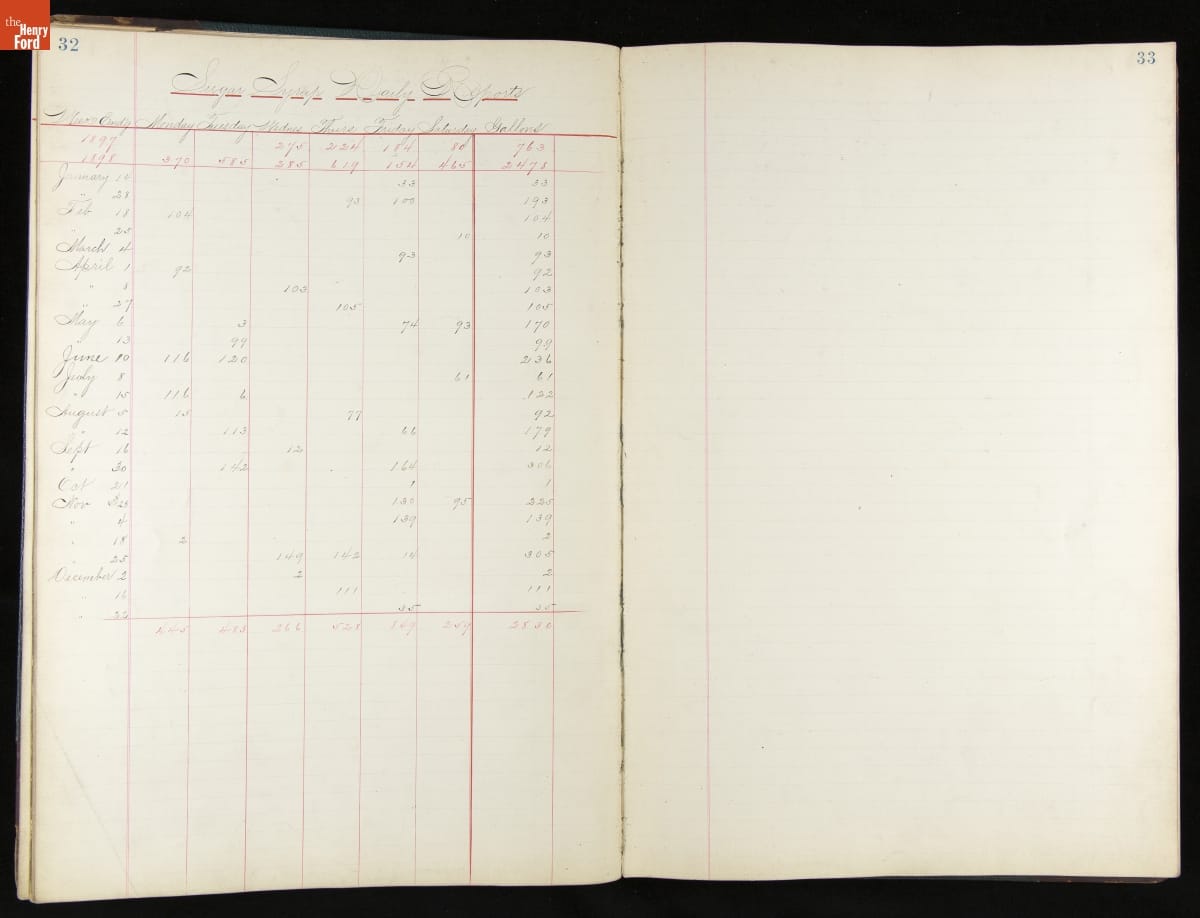 the
Henry
Ford
32
33
Sugar Syrup Daily Reports
Monday Tuesday Wednes Thurs Friday Saturday Gallons
1897 275 224 184 80 763
1898 370 585 285 619 154 465 2478
January 14 33 33
" 28 93 100 193
Feb 18 104 104
" 25 10 10
March 4 93 93
April 1 92 92
" 8 103 103
" 27 105 105
May 6 3 74 93 170
" 13 99 99
June 10 116 120 236
July 8 61 61
" 15 116 6 122
August 5 15 77 92
" 12 113 66 179
Sept 16 12 12
" 30 142 164 306
Oct 21 1 1
Nov 130 95 225
" 4 139 139
" 18 2 2
" 25 149 142 14 305
December 2 2 2
" 16 111 111
" 22 35 35
445 483 266 528 849 259 2830